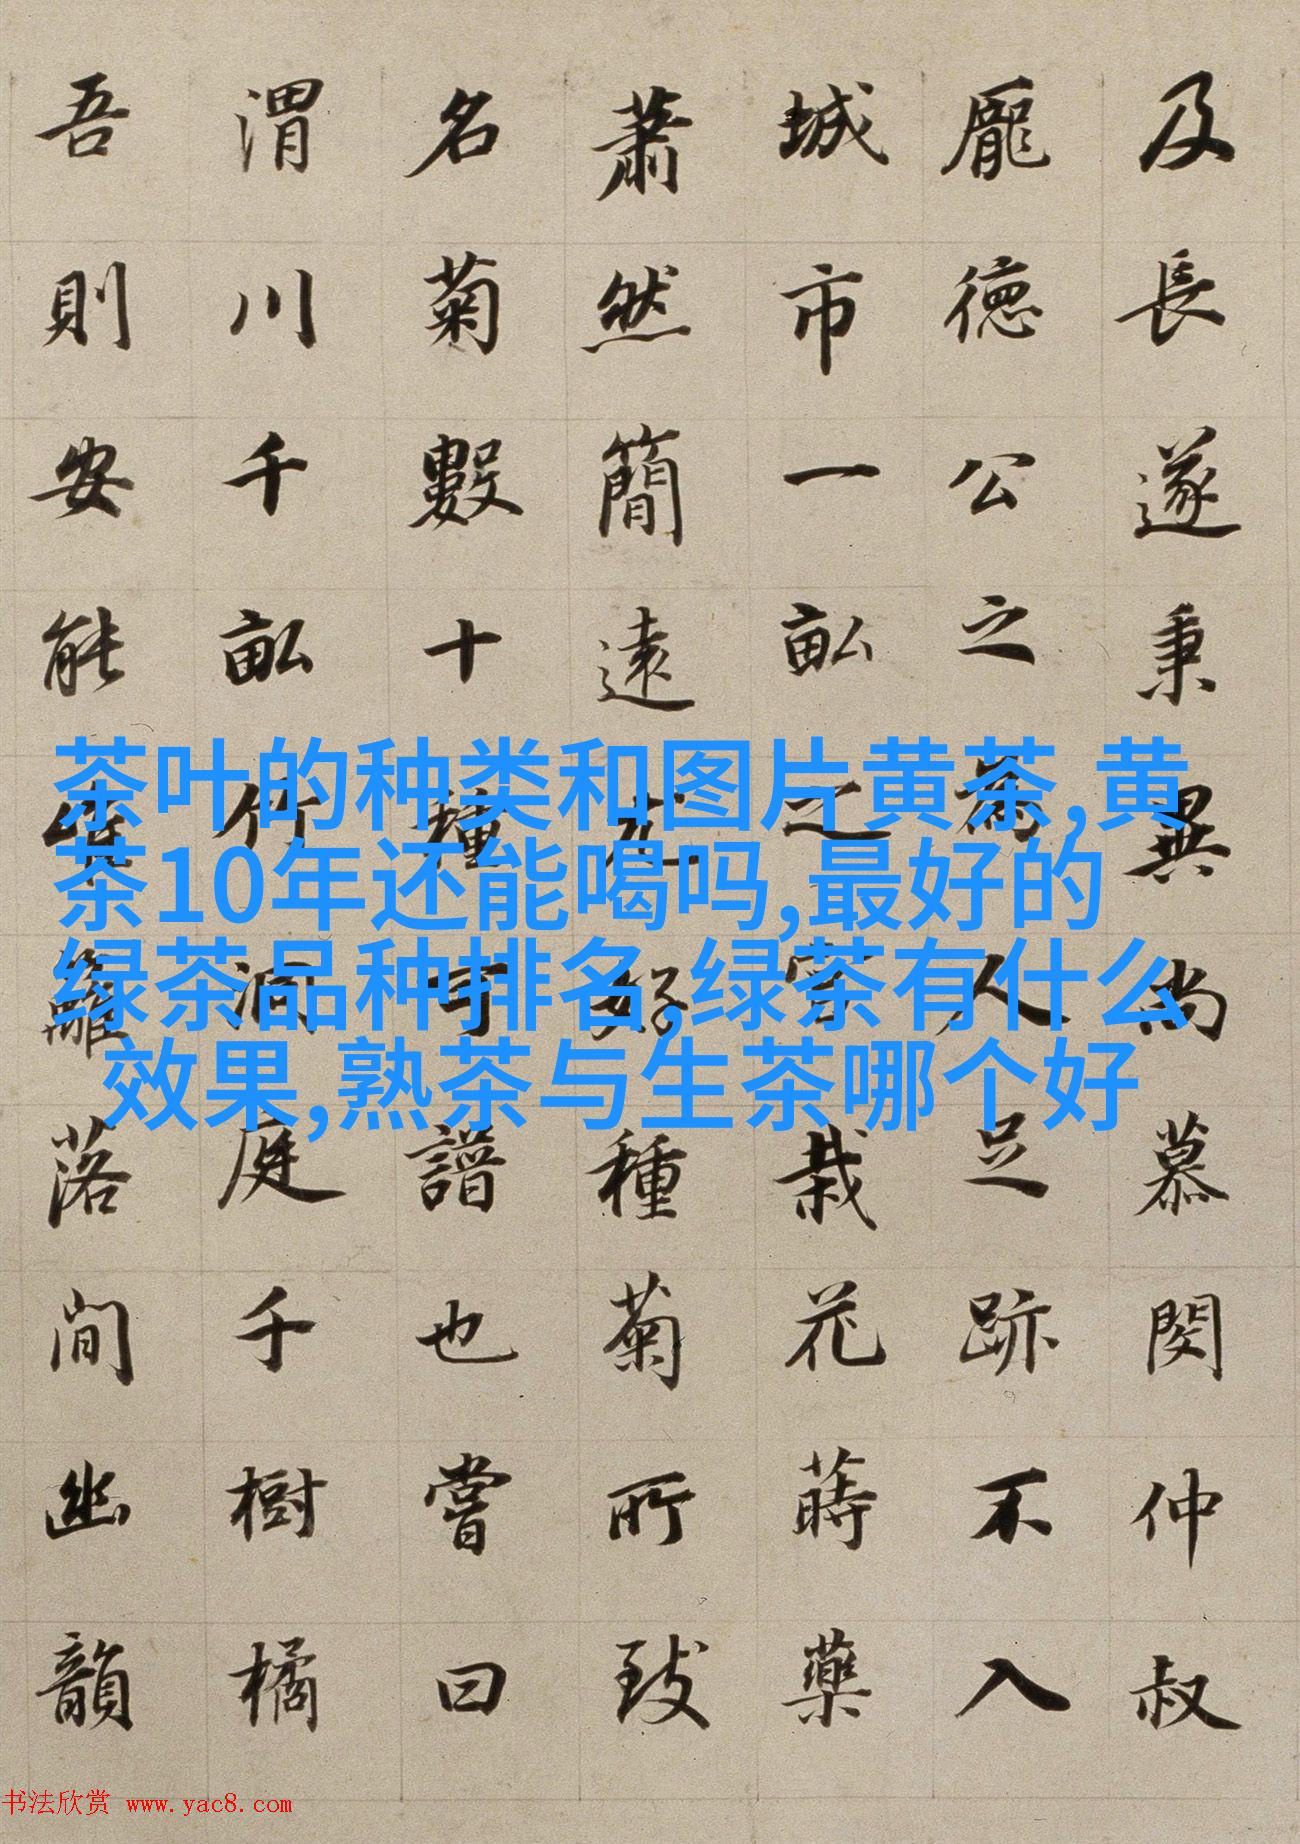 及長遂秉異尚慕閔仲叔
龐徳公之為人足跡不入
城市一畝之宮栽花蒔藥
蕭然簡遠尤好種菊所致
名菊數十種可譜也嘗曰
渭川千畝竹洞庭千樹橘
吾則安能籬落間幽韻
茶叶的种类和图片黄茶,黄
茶10年还能喝吗,最好的
绿茶品种排名,绿茶有什么
效果,熟茶与生茶哪个好
书法欣赏 www.yac8.com